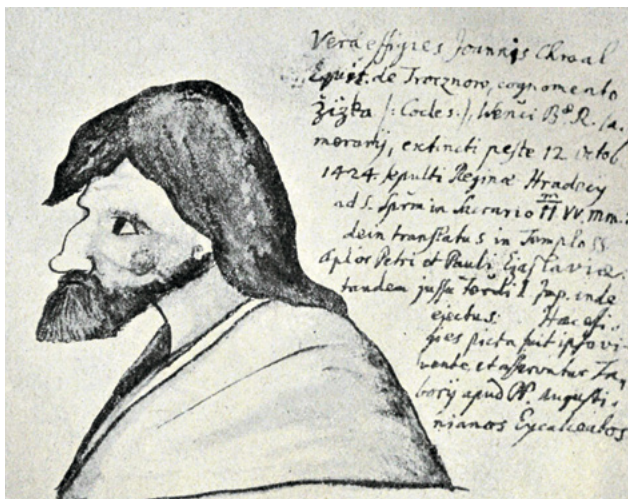 Vera effigies Joannis Chwal
Equit. de Trocznow, cognomento
Žižka /: Cocles :/, Wencl Bᵒ. R. Ca,
merarij, extincti peste 12 octob
1424 sepulti Reginæ Hradecy
ad S. Spirm in Sacrario II VV. mm.
dein translatus in Templo SS
Aplor Petri et Pauli Czaslaviæ.
tandem jussu Ferdi I Imp. inde
ejectus. Hæc effi,
gies picta fuit ipso vi,
vente et asservatur Ta,
borij apud PP. Augusti,
nianos Excalceatos